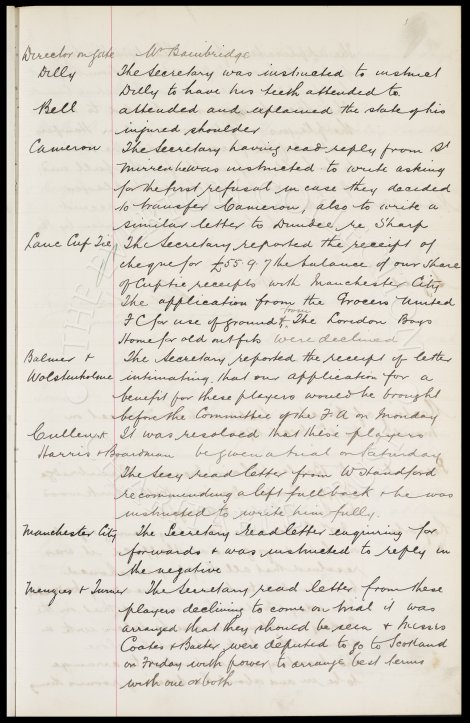 Director on Gate Mr Bainbridge
Dilly The Secretary was instructed to instruct
Dilly to have his teeth attended to
Bell attended and explained the state of his
injured shoulder
Cameron The Secretary having read reply from St
Mirren he was instructed to write asking
for the first refusal in case they decided
to transfer Cameron, also to write a
similar letter to Dundee re Sharp
Lanc Cup Tie The Secretary reported the receipt of
cheque for £55.9.7 the balance of our Share
of Cuptie receipts with Manchester City
The application from the Grocers United
FC for use of ground & from The London Boys
Home for old outfits were declined
Balmer & The Secretary reported the receipt of letter
Wolstenholme intimating that our application for a
benefit for these players would be brought
before the Committee of the F A on Monday
Cullen & It was resolved that these players
Harris & Boardman be given a trial on Saturday
The Secy read letter from W Standford
recommending a left full back & he was
instructed to write him fully.
Manchester City The Secretary read letter enquiring for
forwards & was instructed to reply in
the negative
Menzies & Turner The Secretary read letter from these
players declining to come on trial it was
arranged that they should be seen & Messrs
Coates & Baxter were deputed to go to Scotland
on Friday with power to arrange best terms
with one or both